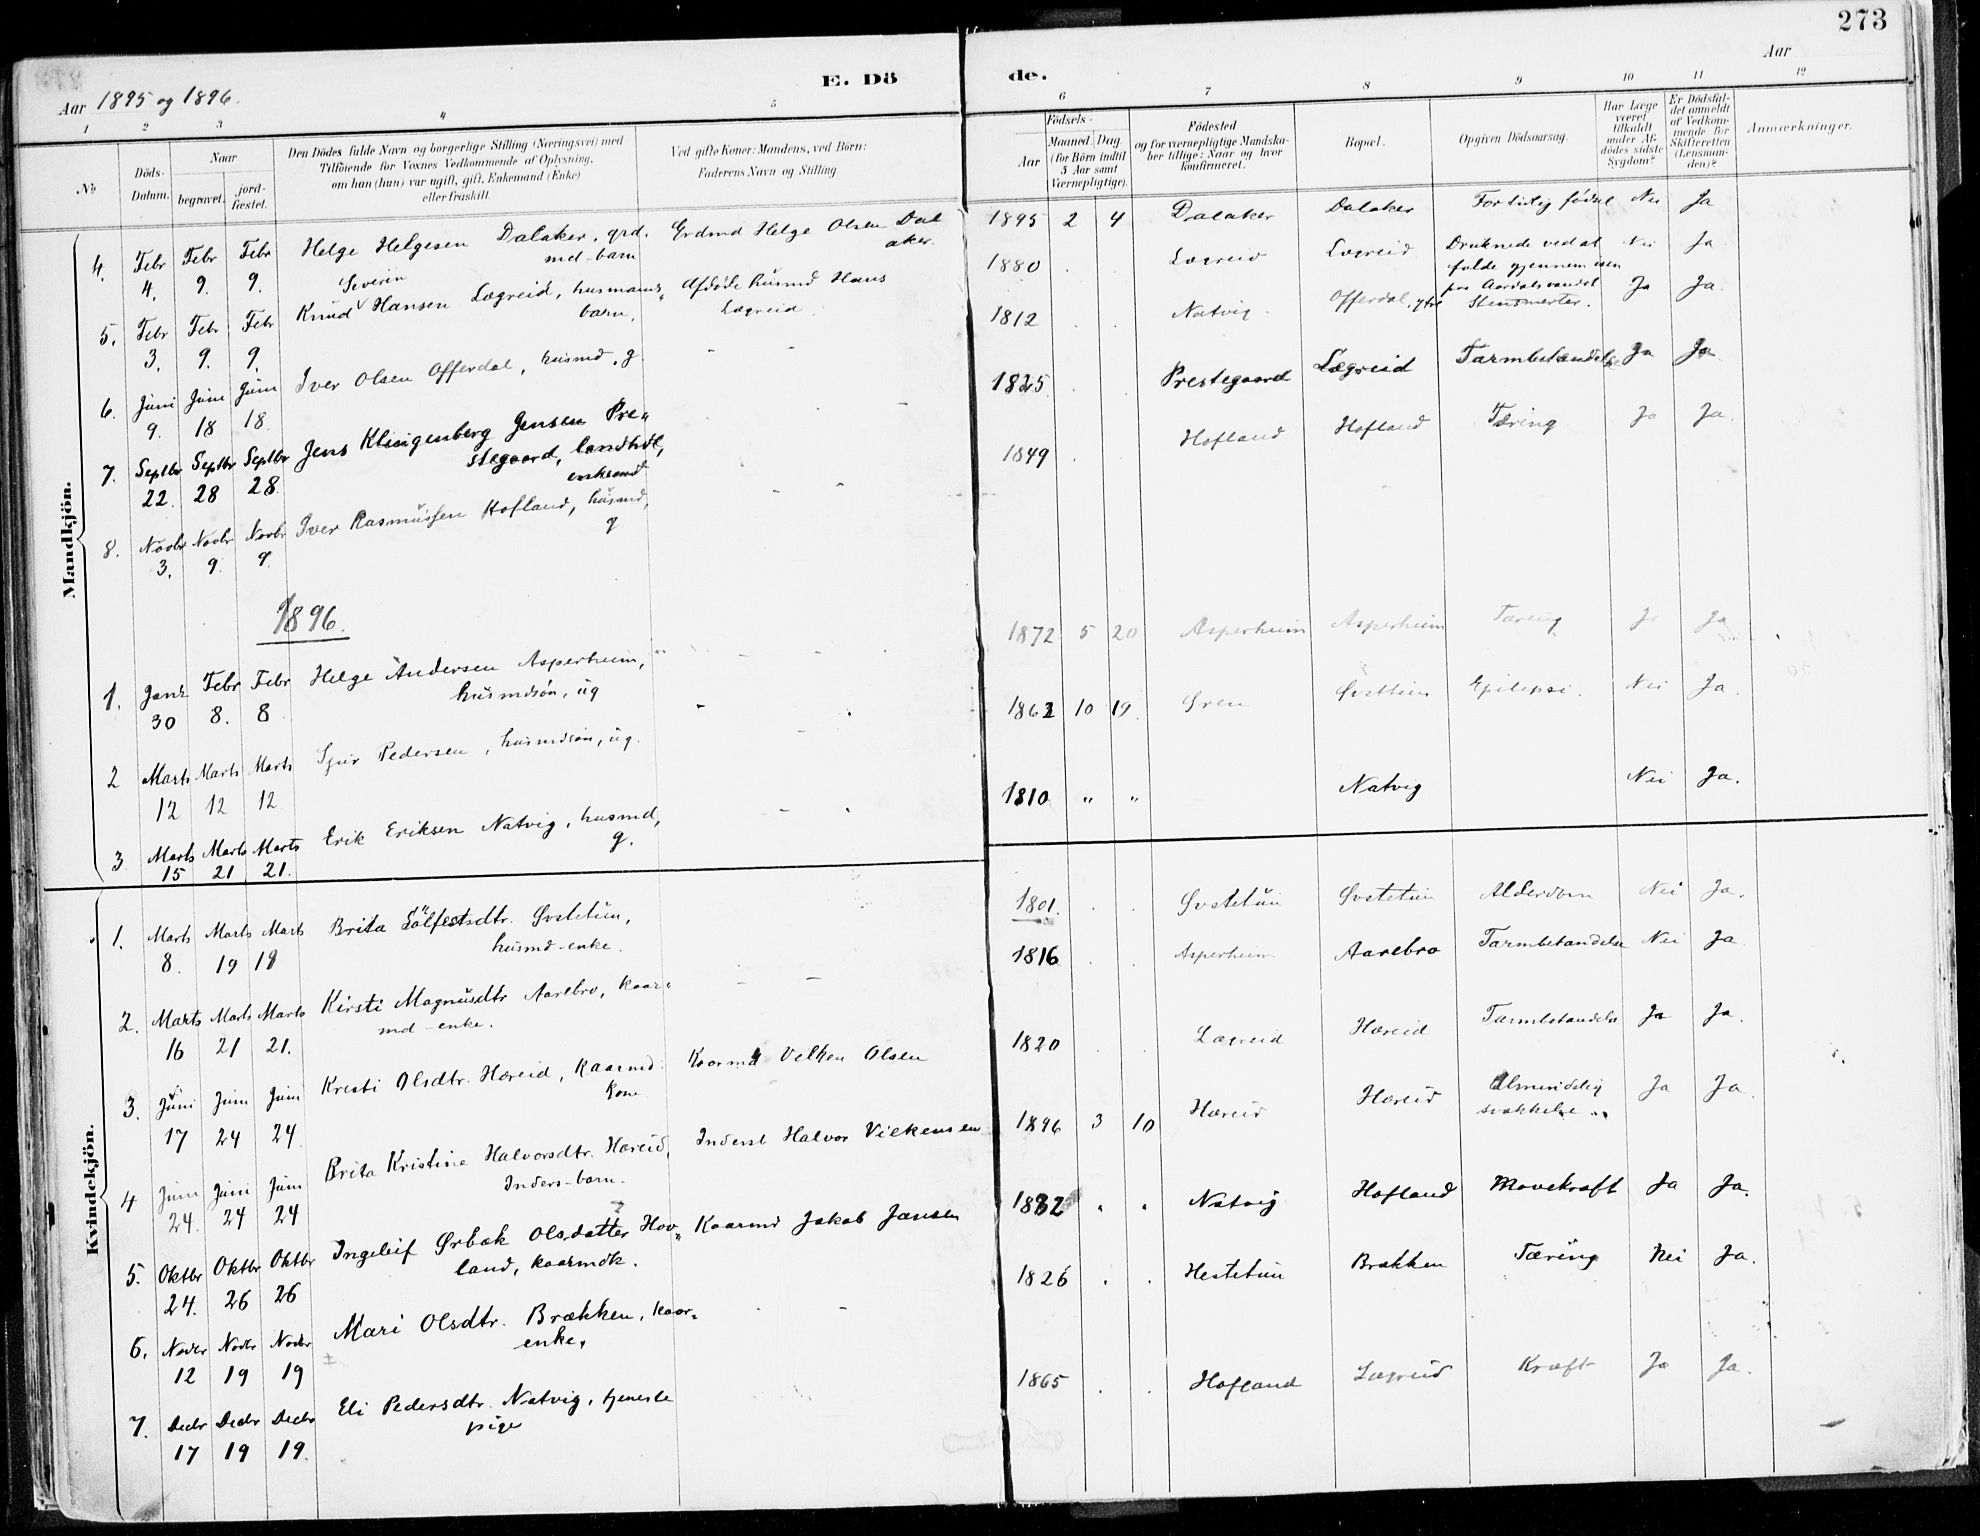 273
E. Dö
de.
Aar 1895 og 1896.
Aar
1 2 3 4 5 6 7 8 9 10 11 12
No
Döds-Datum.
Naar
begravet.
jord-fæstet.
Den Dödes fulde Navn og borgerlige Stilling (Næringsvei) med
Tilföiende for Voxnes Vedkommende af Oplysning,
om han (hun) var ugift, gift, Enkemand (Enke)
eller fraskilt.
Ved gifte Koner: Mandens, ved Börn:
Faderens Navn og Stilling
Födsels-
Aar
Maaned. Dag.
(for Börn indtil
5 Aar samt
Værnepligtige).
Födested
og for værnepligtige Mandska-
ber tillige: Naar og hvor
konfirmeret.
Bopæl.
Opgiven Dödsaarsag.
Har Læge
været
tilkaldt
under Af-
dödes sidste
Sygdom?
Er Dödsfal-
det anmeldt
af Vedkom-
mende for
Skifteretten
(Lensman-
den)?
Anmærkninger.
Mandkjön.
4. Febr 4. Febr 9. Febr 9. Helge Helgesen Dalaker, grd.
md-barn
Grdmd Helge Olsen Dal
aker.
1895 2 4 Dalaker Dalaker For tidlig födsel Nei Ja
5. Febr 3. Febr 9. Febr 9. Severin
Knud Hansen Lægreid, husmands
barn,
Afdöde husmd Hans
Lægreid
1880 . . Lægreid Lægreid Druknede ved at
falde gjennem isen
paa Aardalsvandet
Nei Ja
6. Juni 9. Juni 18 Juni 18. Iver Olsen Offerdal, husmd, g - -
1812 . . Natvig Offerdal, ytre Stensmerter. Ja Ja.
7. Septbr 22. Septbr 28 Septbr 28. Jens Klingenberg Jensen Pre-
stegaard, landhdl,
enkemand
- -
1825 . . Prestegaard Lægreid Tarmbetændelse Ja Ja
8. Novbr 3. Novbr 9. Novbr 9. Iver Rasmussen Hofland, husmd,
g
- -
1849 Hofland Hofland Tæring Ja Ja.
1896.
1. Janr 30 Febr 8. Febr 8 Helge Andersen Asperheim,
husmdsön, ug
- -
1872 5 20 Asperheim Asperheim Tæring Ja Ja
2 Marts 12 Marts 12 Marts 12. Sjur Pedersen, husmdsön, ug. - .
10 19. Øren Epilepsi. Nei Ja.
3 Marts 15 Marts 21 Marts 21. Erik Eriksen Natvig, husmd,
g.
- .
1810 " " Natvig Nei Ja.
Kvindekjön.
1. Marts 8. Marts 19 Marts 19 Brita Øvstetun,
husmd-enke.
1801. . . Øvstetun Øvstetun Alderdom Nei Ja.
2. Marts 16 Marts 21 Marts 21. Kirsti Magnusdtr Aarebro, kaar-
md-enke.
- -
1816 . . Asperheim Aarebro Tarmbetændelse Nei Ja
3. Juni 17 Juni 24 Juni 24. Kristi Olsdtr. Hæreid, kaarmd
kone
Kaarmd Velken Olsen
1820 . . Lægreid Hæreid Tarmbetændelse Ja Ja.
4 Juni 24. Juni 24 Juni 24 Brita Kristine Halvorsdtr. Hæreid,
Inders-barn.
Inderst Halvor Vilkensen
1896 3 10 Hæreid Hæreid Almindelig
svækkelse
Ja Ja.
5. Oktbr 24. Oktbr 26 Oktbr 26 Ingeleif Ørbæk Olsdatter Hov-
land, kaarmdk.
Kaarmd Jakob Jansen
1832 " " Natvig Hofland Mavekræft Ja Ja.
6. Novbr 12 Novbr 19 Novbr 19 Mari Olsdtr. Brækken, kaar-
enke.
- -
1826 . . Hestetun Brækken Tæring Nei Ja.
7. Decbr 17 Decbr 19 Decbr 19. Eli Pedersdtr. Natvig, tjeneste
pige
1865 . . Hofland Lægreid Kræft Ja Ja.